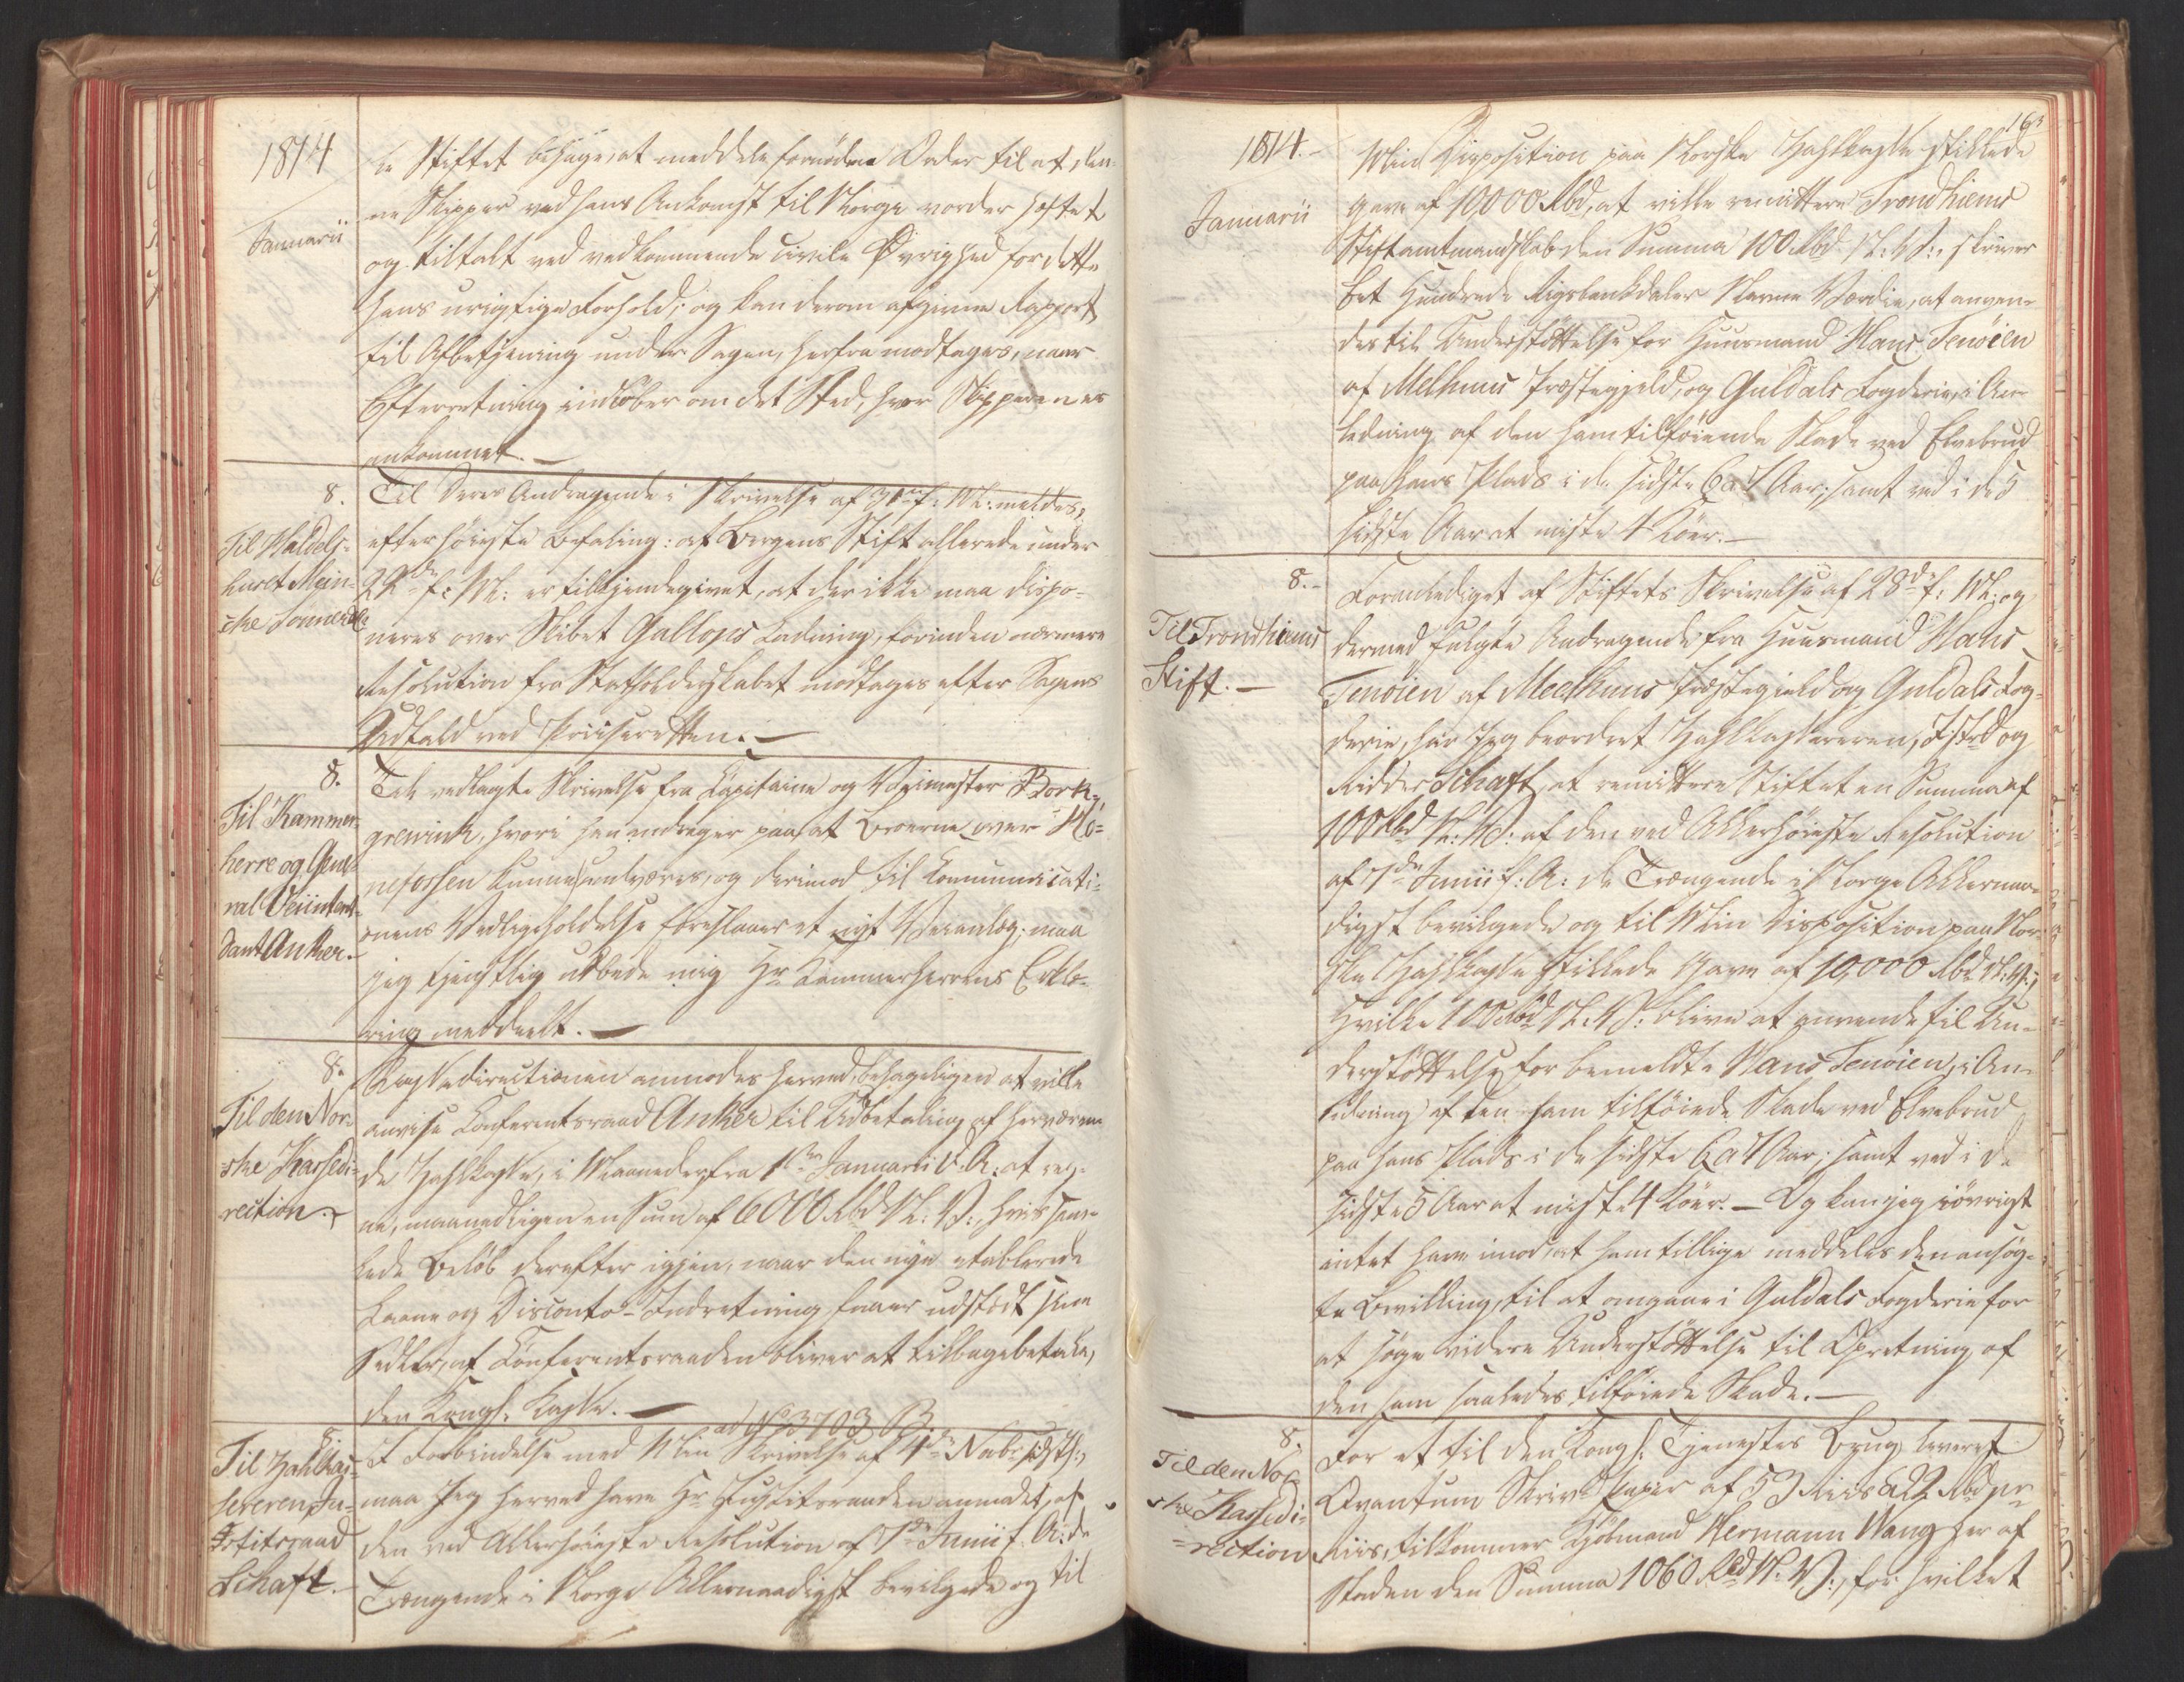 1814
Januarii
te Stiftet behage, at meddele fornødne Ordre til at den-
ne Skipper ved hans Ankomst til Norge vorder heftet
og tiltalt ved vedkommende civile Øvrighed for dette
hans urigtige Forhold; og kan derom afgivne Rapport
til Afbetjening under Sagen, herfra modtages, naar
Efterretning indløber om det Sted, hvor Skipperen er
ankommet.
8.
Til Haldels-
huset Mein-
cke Sonnerdl.
Til Deres Andragende i Skrivelse af 31te f: M: meldes,
efter høieste Befaling: at Bergens Stift allerede under
22de f: M: er tilkjendegivet, at der ikke maa dispo-
neres over Skibet Gallops Ladning, forinden nærmere
Resolution fra Statholderskabet modtages efter Sagens
Udfald ved Priiseretten.
8.
Til Kammer-
herre og Gene-
ral Veiinten-
dant Anker.
Ved vedlagte Skrivelse fra Capitaine og Veimester Bork-
grevink, hvori han andrager paa, at Broerne over Hø-
nefossen kunne undværes, og derimod til Communicati-
onens Vedligeholdelse foreslaaer et nyt Veianlæg, maa
jeg tjenstlig udbede mig Hr Kammerherrens Erklæ-
ring meddeelt.
8.
Til den Nor-
ske Kassedi-
rection.
Kassedirectionen anmodes herved, behageligen at ville
anvise Conferentsraad Anker til Udbetaling af herværen-
de Zahlkasse, i Maaneder fra 1ste Januarii d: A: at reg-
ne, maanedligen en Sum af 6000 Rbd N: V:, hvis sam-
lede Beløb derefter igjen, naar den nye etablerede
Laane og Disconto-Indretning faaer udstædt sine
Sedler, af Conferentsraaden bliver at tilbagebetale,
den Kongl. Kasse.
8.
Til Zahlkas-
sereren Ju-
stitsraad
Schaft.
ad No 3703 B
I Forbindelse med Min Skrivelse af 4de Nvbr sidstl:,
maa Jeg herved have Hr Justitsraaden anmodet, af
den ved Allerhøieste Resolution af 7de Junii f. A: de
Trængende i Norge Allernaadigst bevilgede og til
163
1814.
Januarii
Min Disposition paa Norske Zahlkasse stillede
Gave af 10000 Rbd, at ville remittere Trondhiems
Stiftamtmandskab den Summa 100 Rbd N: V:, skriver
Eet Hundrede Rigsbankdaler Navne Værdie, at anven-
des til Understøttelse for Huusmand Hans Tenøien
af Melhuus Præstegjeld, og Guldals Fogderie, i An-
ledning af den ham tilføiende Skade ved Elvebrud
paa hans Plads i de sidste 6 a 7 Aar; samt ved i de 5
sidste Aar at miste 4 Køer.
8.
Til Trondhiems
Stift.
Foranlediget af Stiftets Skrivelse af 28de f: M: og
dermed fulgte Andragende fra Huusmand Hans
Tenøien af Meelhuus Præstegield og Guldals Fog-
derie, har Jeg beordret Zahlkassereren, Jstrd og
Ridder Schaft, at remittere Stiftet en Summa af
100 Rbd N: V: af den ved Allerhøieste Resolution
af 7de Junii f: A: de Trængende i Norge Allernaa-
digst bevilgede og til Min Disposition paa Nor-
ske Zahlkasse stillede Gave af 10,000 Rbd N: V:;
Hvilke 100 Rbd N: V: blive at anvende til Un-
derstøttelse for bemeldte Hans Tenøien, i An-
ledning af den ham tilføiede Skade ved Elvebrud
paa hans Plads i de sidste 6 a 7 Aar; samt ved i de
sidste 5 Aar at miste 4 Køer. — Og kan jeg iøvrigt
intet have imod, at ham tillige meddeles den ansøg-
te Bevilling, til at omgaae i Guldals Fogderie for
at søge videre Understøttelse til Opretning af
den ham saaledes tilføiede Skade.
8.
Til den Nor-
ske Kassedi-
rection
For et til den Kongl. Tjenestes Brug leveret
Qvantum Skriv Papir af 53 Riis à 22 Rbd pr
Riis, tilkommer Kjøbmand Hermann Wang her af
Staden den Summa 1060 Rbd N: V:, for hvilket